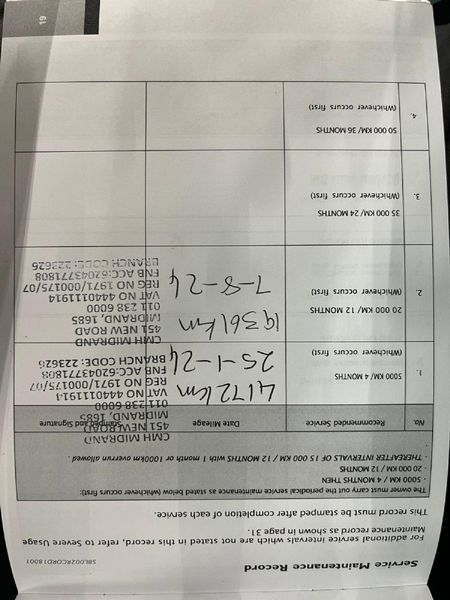 Service Maintenance Record
SBL002RCORD18001
For additional service intervals which are not stated in this record, refer to Severe Usage
Maintenance record as shown in page 31.
This record must be stamped after completion of each service.
The owner must carry out the periodical service maintenance as stated below (whichever occurs first):
- 5000 KM / 4 MONTHS THEN
- 20 000 KM / 12 MONTHS
- THEREAFTER INTERVALS OF 15 000 KM / 12 MONTHS with 1 month or 1000km overrun allowed.
No.
Recommended Service
Date Mileage
Stamped and Signature
1.
5000 KM/ 4 MONTHS
(Whichever occurs first)
4172km
25-1-24
CMH MIDRAND
451 NEW ROAD
MIDRAND, 1685
011 238 6000
VAT NO 4440111914
REG NO 1971/000175/07
FNB ACC:62043771808
BRANCH CODE: 223626
2.
20 000 KM/ 12 MONTHS
(Whichever occurs first)
19361km
7-8-24
CMH MIDRAND
451 NEW ROAD
MIDRAND, 1685
011 238 6000
VAT NO 4440111914
REG NO 1971/000175/07
FNB ACC:62043771808
BRANCH CODE: 223626
3.
35 000 KM/ 24 MONTHS
(Whichever occurs first)
4.
50 000 KM/ 36 MONTHS
(Whichever occurs first)
19